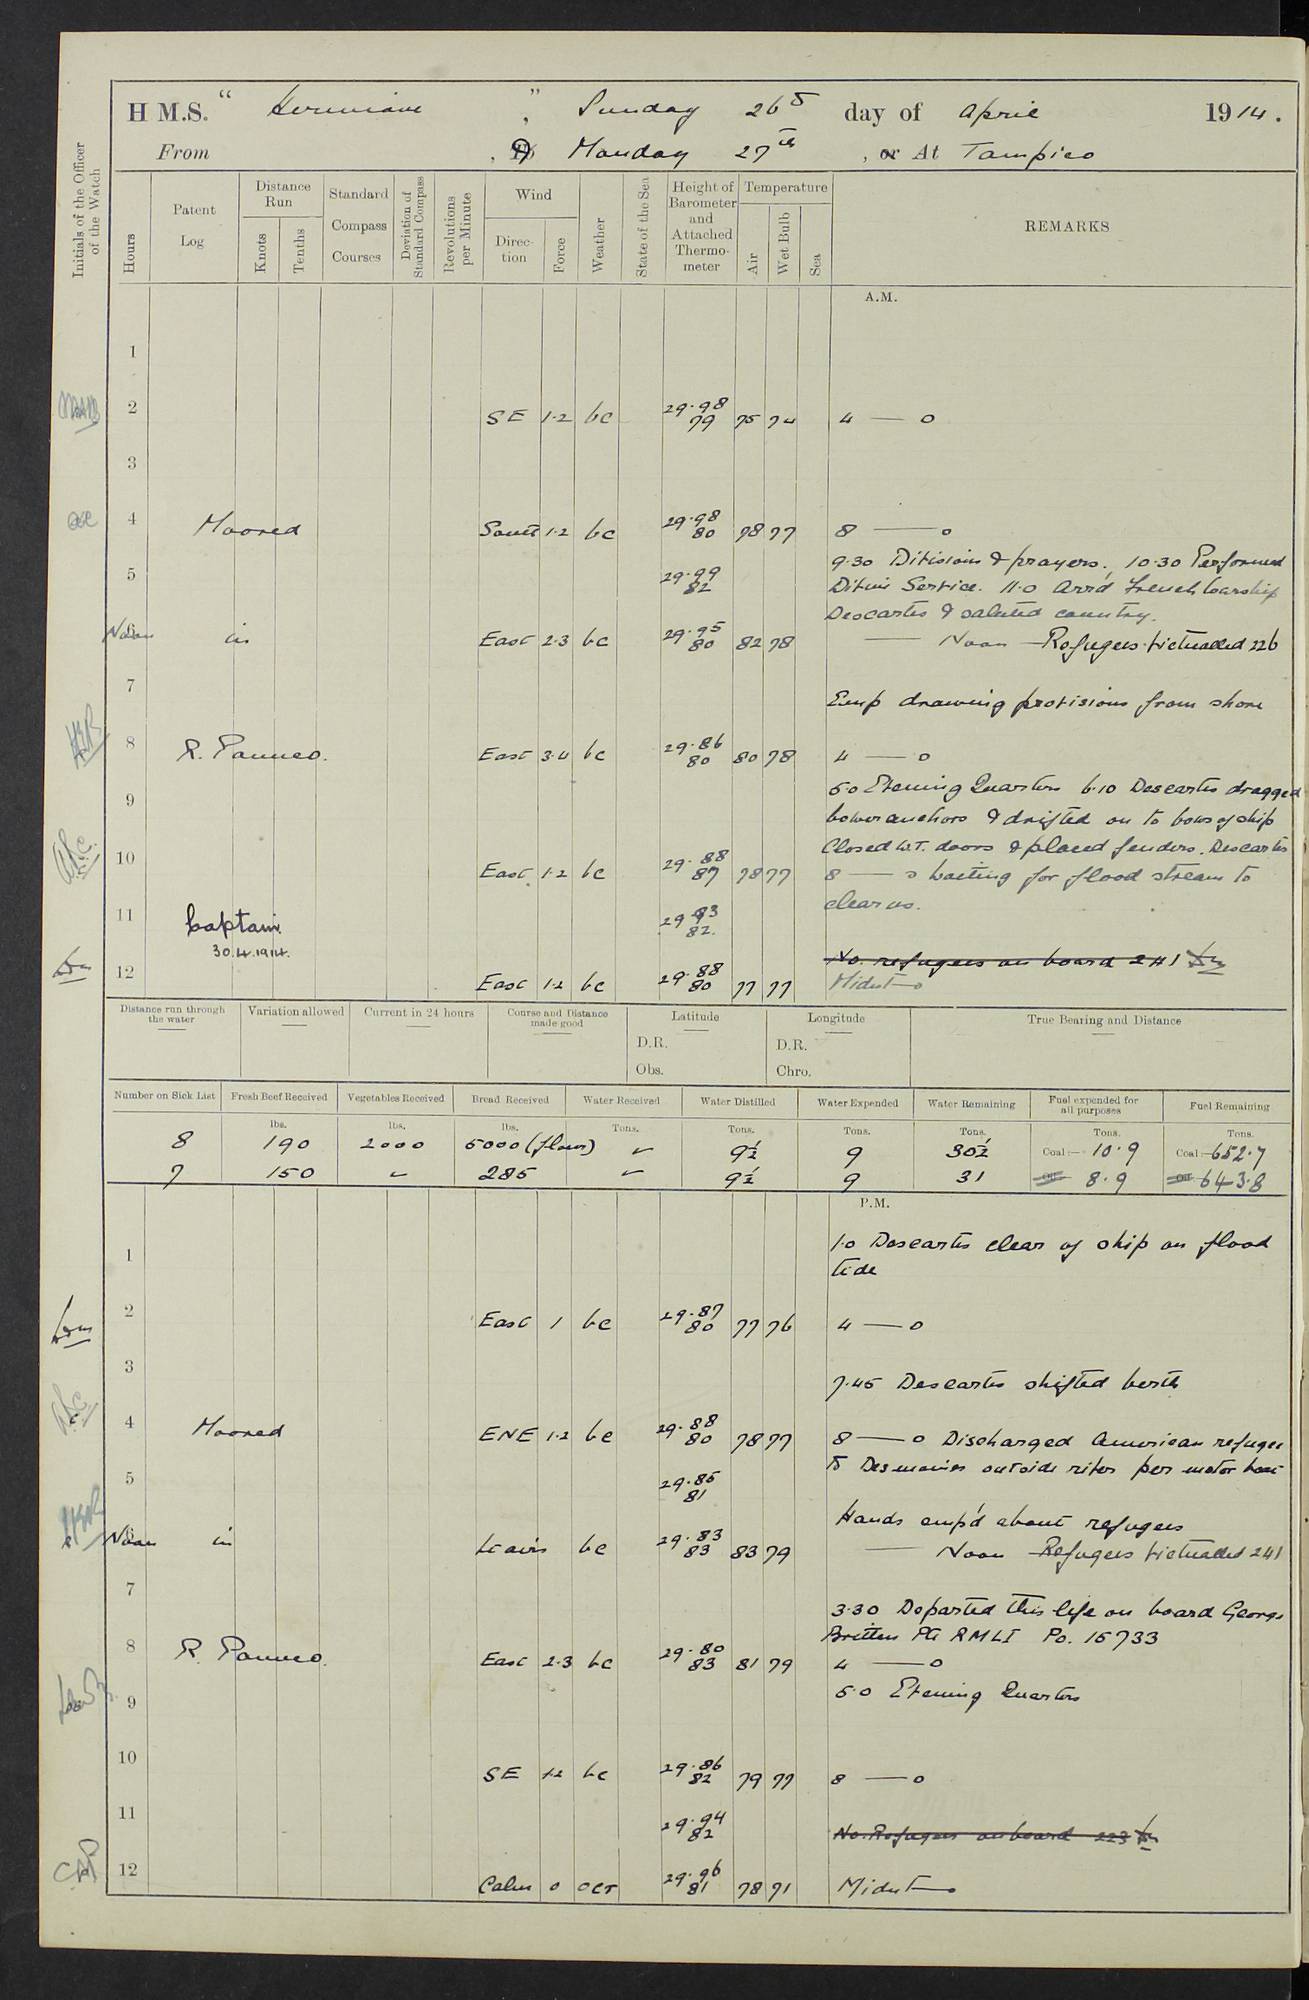 H.M.S. " Hermione " , Sunday 26th day of April 1914.
From , To & Monday 27th , or At Tampico
Initials of the Officer of the Watch
Hours
Patent Log
Distance Run
Knots
Tenths
Standard Compass Courses
Deviation of Standard Compass
Revolutions per Minute
Wind
Direction
Force
Weather
State of the Sea
Height of Barometer and Attached Thermometer
Temperature
Air
Wet Bulb
Sea
REMARKS
A.M.
1
2 SE 1.2 bc 29.98 79 75 74 4 — o
3
4 Moored South 1.2 bc 29.98 80 78 77 8 — o
9.30 Divisions & prayers. 10.30 Performed
5 29.99 82 Divine Service. 11.0 Arrd French warship
Descartes & saluted country.
Noon in East 2.3 bc 29.95 80 82 78 — Noon — Refugees victualled 226
7
Emp drawing provisions from shore
8 R. Panuco. East 3.4 bc 29.86 80 80 78 4 — o
9 5.0 Evening Quarters 6.10 Descartes dragged
bower anchors & drifted on to bows of ship
Closed W.T. doors & placed fenders. Descartes
10 East 1.2 bc 29.88 87 78 77 8 — o waiting for flood stream to
clear us.
11 Captain 29.93 82
30.4.1914.
No. refugees on board 241
12 East 1.2 bc 29.88 80 77 77 Midnt — o
Distance run through the water
Variation allowed
Current in 24 hours
Course and Distance made good
Latitude
D.R.
Obs.
Longitude
D.R.
Chro.
True Bearing and Distance
Number on Sick List
Fresh Beef Received
Vegetables Received
Bread Received
Water Received
Water Distilled
Water Expended
Water Remaining
Fuel expended for all purposes
Fuel Remaining
lbs. lbs. lbs. Tons. Tons. Tons. Tons. Tons. Tons.
8 190 2000 5000 (flour) ✓ 9½ 9 30½ Coal:— 10.9 Coal:— 652.7
7 150 ✓ 285 ✓ 9½ 9 31 Oil 8.9 Oil 643.8
P.M.
1 1.0 Descartes clear of ship on flood
tide
2 East 1 bc 29.87 80 77 76 4 — o
3
7.45 Descartes shifted berth
4 Moored ENE 1.2 bc 29.88 80 78 77 8 — o Discharged American refugee
to Desmoines outside river per motor boat
5 29.85 81
Hands emp'd about refugees
Noon in Lt airs bc 29.83 83 83 79 — Noon — Refugees victualled 241
7
3.30 Departed this life on board George
Britten Pte RMLI Po. 15733
8 R. Panuco. East 2.3 bc 29.80 83 81 79 4 — o
9 5.0 Evening Quarters
10 SE 1.2 bc 29.86 82 79 77 8 — o
11 29.94 82
No. Refugees on board 223
12 Calm 0 ocr 29.96 81 78 71 Midnt — o